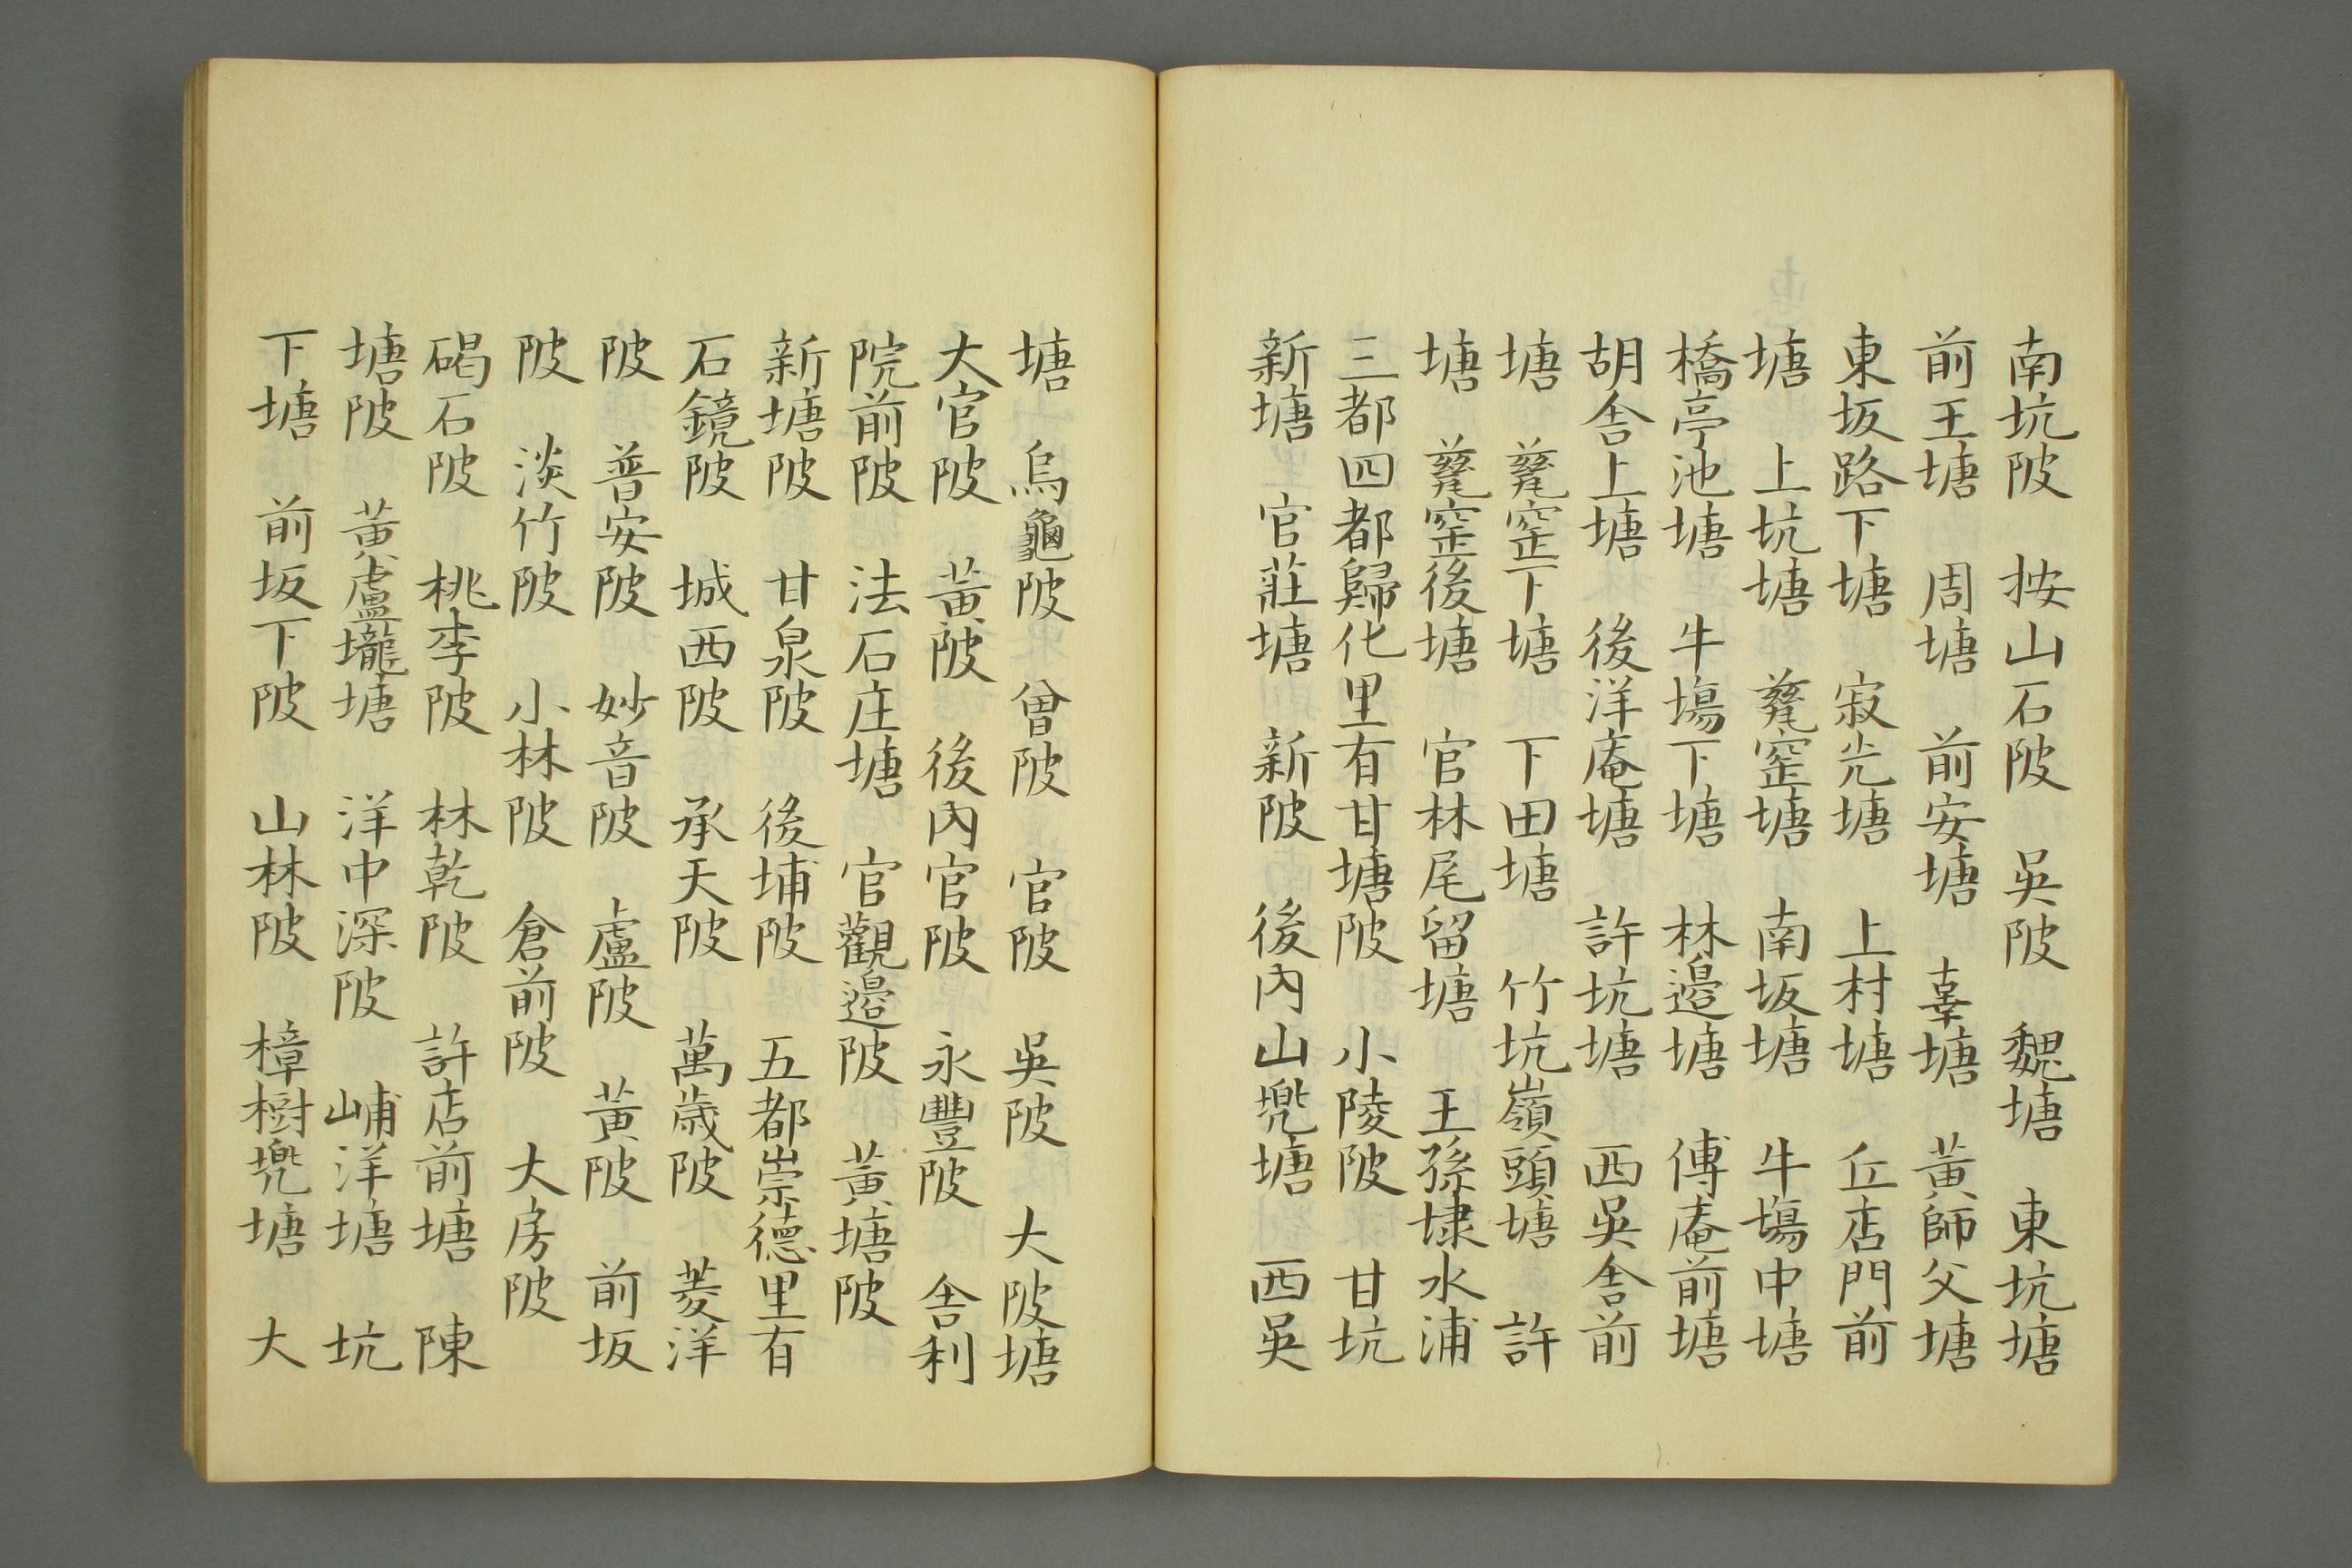 南坑陂　按山石陂　吳陂　魏塘　東坑塘
前王塘　周塘　前安塘　辜塘　黃師父塘
東坂路下塘　寂光塘　上村塘　丘店門前
塘　上坑塘　甃窑塘　南坂塘　牛塲中塘
橋亭池塘　牛塲下塘　林邉塘　傅庵前塘
胡舎上塘　後洋庵塘　許坑塘　西吳舎前
塘　甃窑下塘　下田塘　竹坑嶺頭塘　許
塘　甃窑後塘　官林尾留塘　王孫埭水浦
三都四都歸化里有甘塘陂　小陵陂　甘坑
新塘　官莊塘　新陂　後內山兠塘　西吳
塘　烏龜陂　曾陂　官陂　吳陂　大陂塘
大官陂　黃陂　後內官陂　永豐陂　舎利
院前陂　法石庄塘　官觀邉陂　黃塘陂
新塘陂　甘泉陂　後埔陂　五都崇德里有
石鏡陂　城西陂　承天陂　萬歲陂　菱洋
陂　普安陂　妙音陂　盧陂　黃陂　前坂
陂　淡竹陂　小林陂　倉前陂　大房陂
碣石陂　桃李陂　林乾陂　許店前塘　陳
塘陂　黃盧壠塘　洋中深陂　峬洋塘　坑
下塘　前坂下陂　山林陂　樟樹兠塘　大